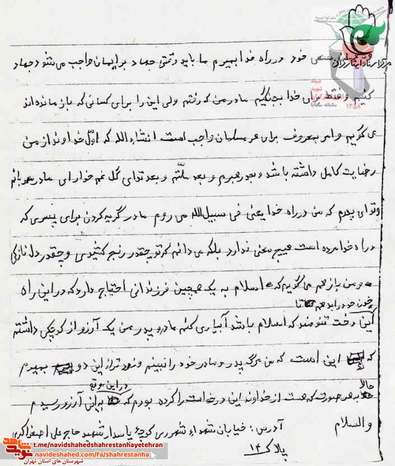 خود در راه خدا بمیرم ما باید وقتی جهاد بر ایمان واجب می شود جهاد
کنیم و فقط برای خدا بجنگیم مادر من که رفتم ولی این را برای کسانی که باز مانده اند
می گویم و امر به معروف برای هر مسلمان واجب است انشاء الله که اول خداوند از من
رضایت کامل داشته باشد و بعد رهبرم و بعد ملتم و بعد توای گل غم خوار ای مادر مهربانم
و توای پدرم که من در راه خدا یعنی فی سبیل الله می روم مادر گریه کردن برای پسری که
در راه خدا مرده است هیچ معنی ندارد بلکه می دانم که تو چقدر رنج کشیدی و چقدر دل نازکی
و من باز هم می گویم که اسلام به یک همچین فرزندانی احتیاج دارد که در این راه
خون خود را بدهم تا
این درخت تنومند که اسلام باشد آبیاری کنم مادر و پدر من یک آرزو از کوچکی داشتم
که این است که من مرگ پدر و مادر خود را نبینم و زودتر از این دو بمیرم
حالا به هر صورت که هست از خداوند این درخواست را کرده بودم که در این موقع به این آرزو رسیدم
والسلام آدرس: خیابان شهداء شهر ری کوچه پاسدار شهید حاج علی اصغر اکبری
پلاک ۱۴
t.me/navideshahedshahrestanhayetehran
www.navideshahed.com/fa/shahrestanha
شهرستان های استان تهران